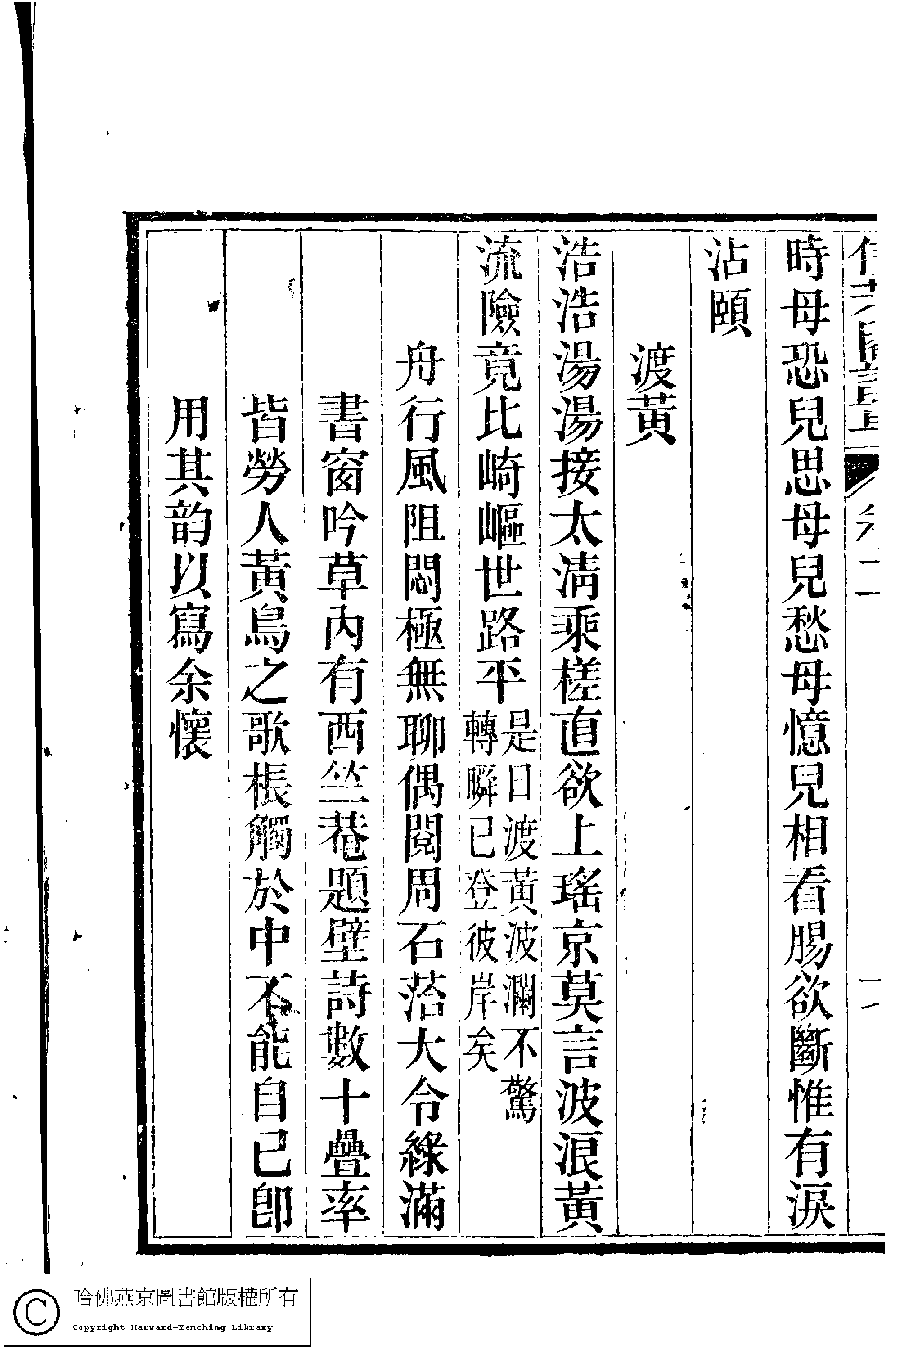 卷二
時母恐兒思母兒愁母憶兒相看腸欲斷惟有淚
沾頤
渡黃
浩浩湯湯接太清乘槎直欲上瑤京莫言波浪黃
流險竟比崎嶇世路平是日渡黃波瀾不驚
轉瞬已登彼岸矣
舟行風阻悶極無聊偶閱周石菭大令綠滿
書窗吟草內有西竺菴題壁詩數十疊率
皆勞人黃鳥之歌棖觸於中不能自已卽
用其韵以寫余懷
哈佛燕京圖書館版權所有
Copyright Harvard-Yenching Library